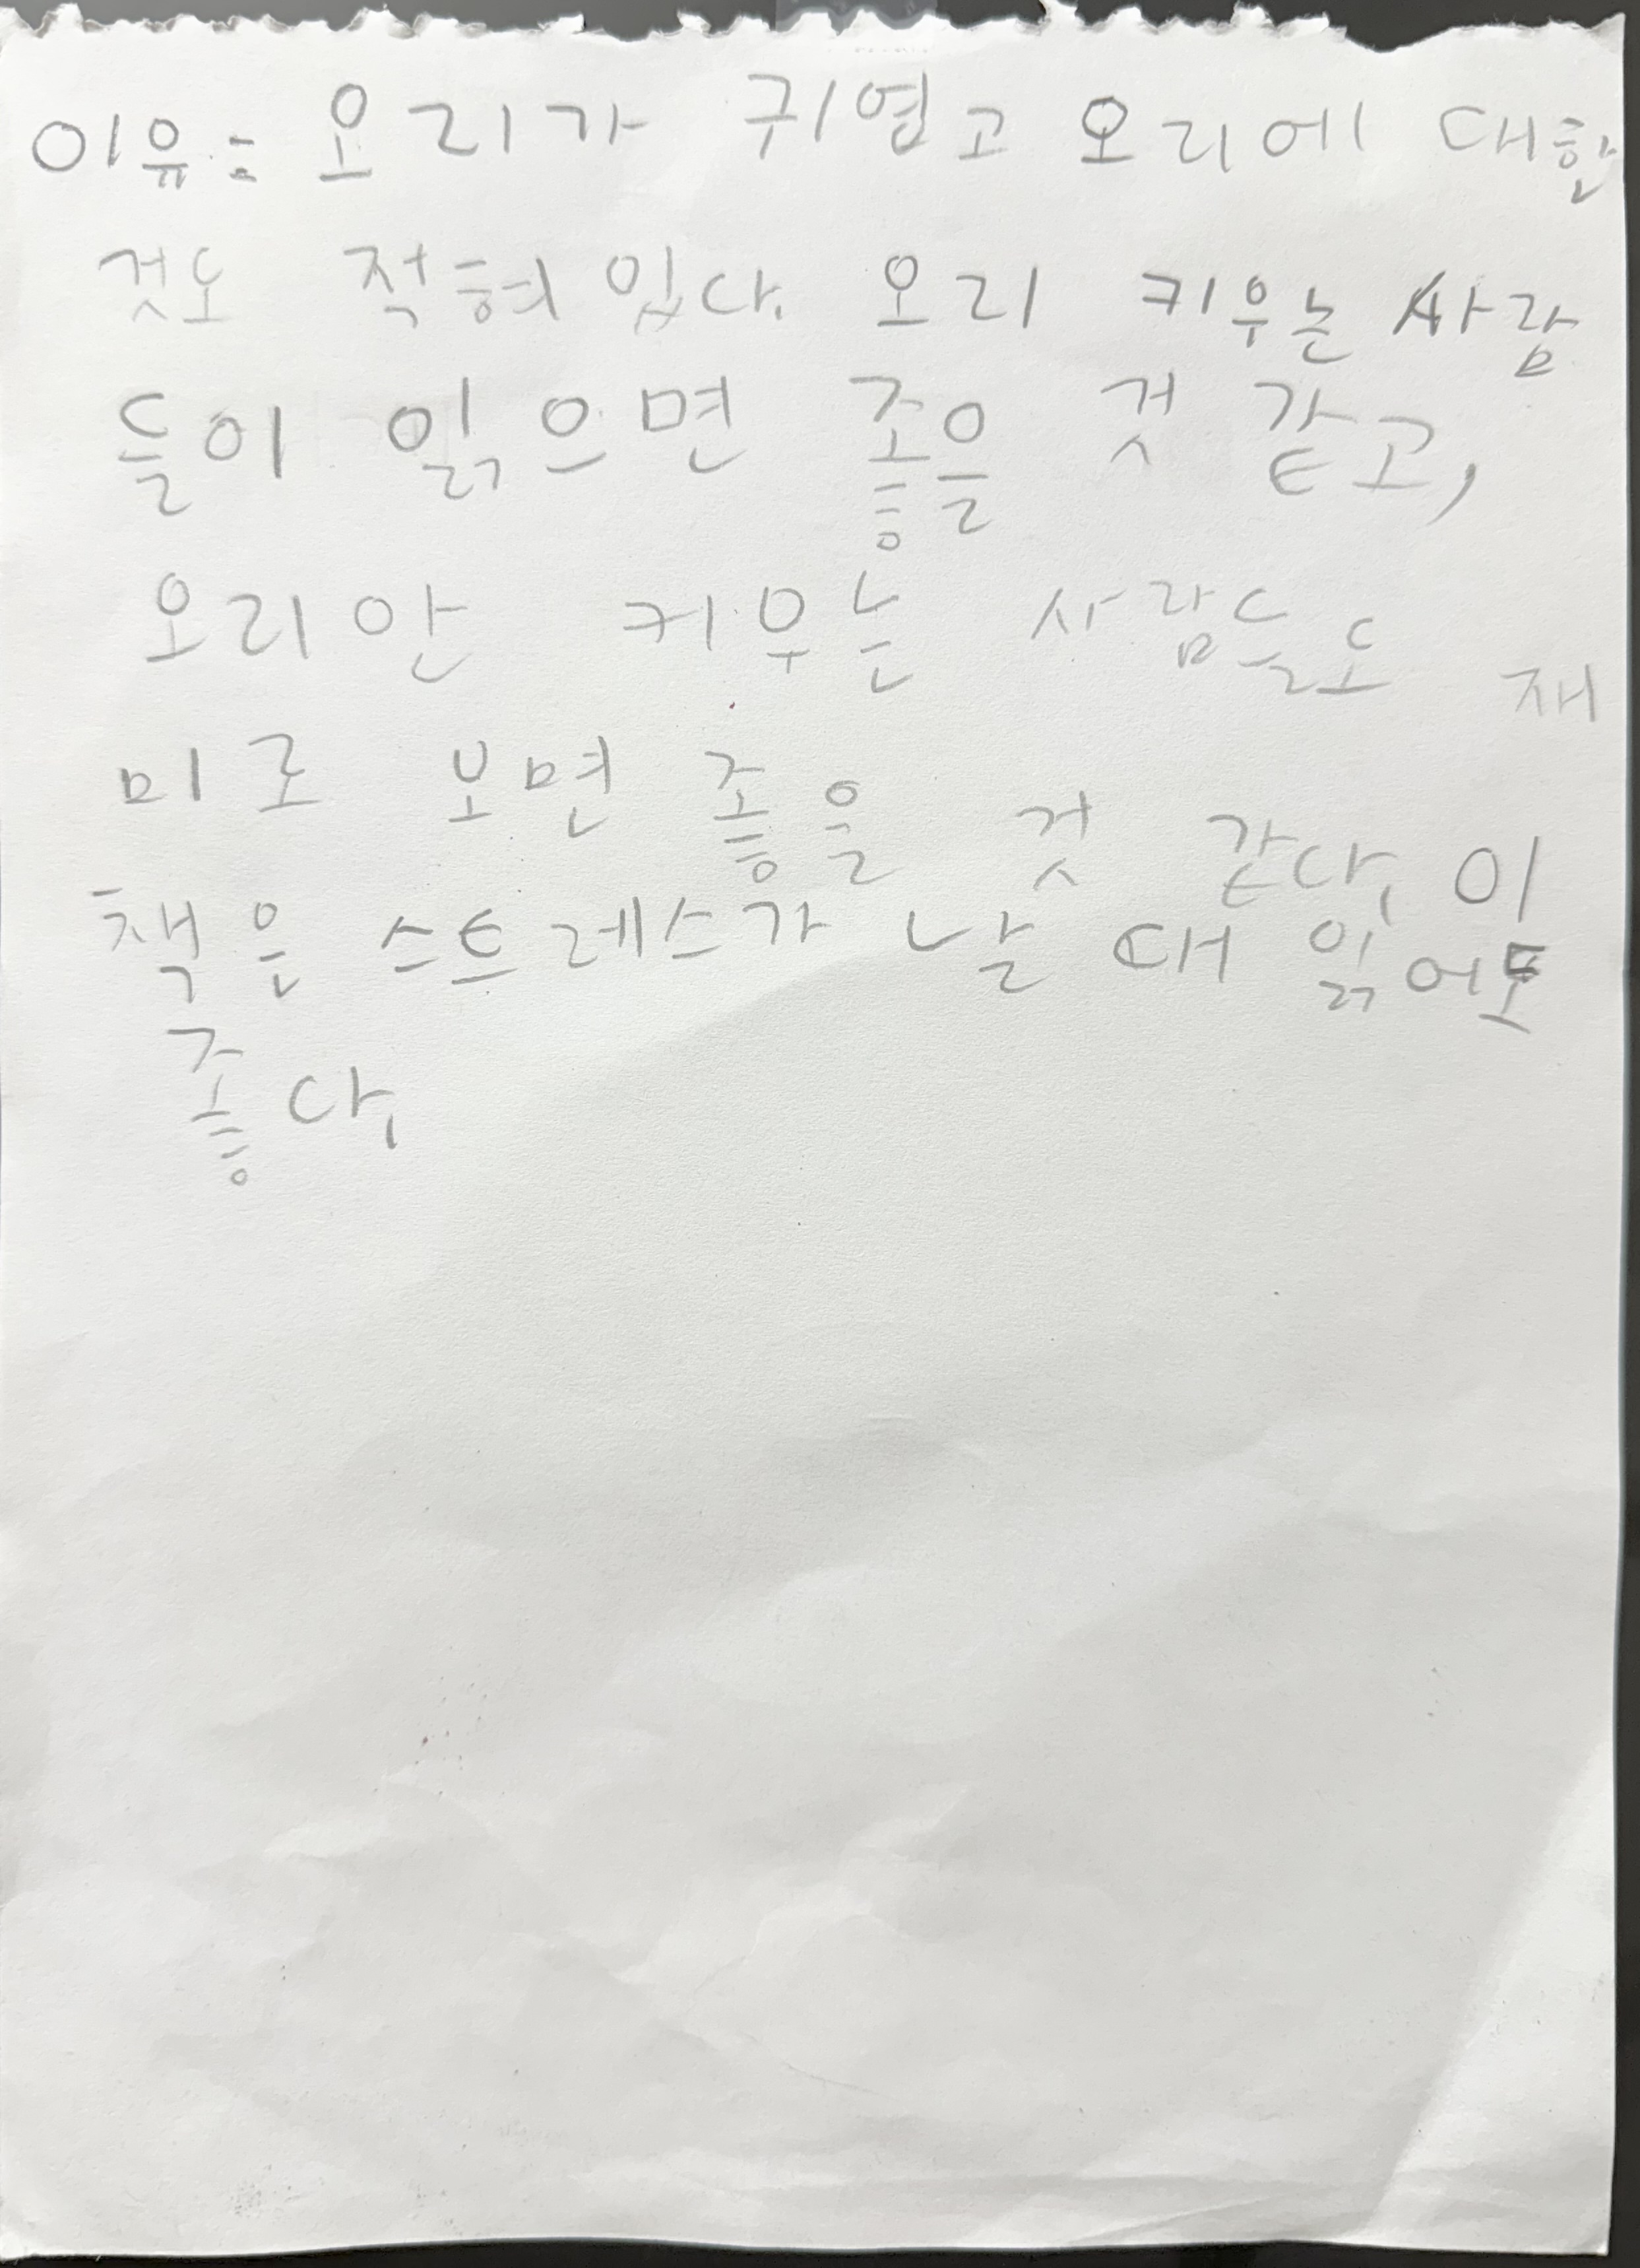 이유: 오리가 귀엽고 오리에 대한
것도 적혀있다. 오리 키우는 사람
들이 읽으면 좋을 것 같고,
오리안 키우는 사람들도 재
미로 보면 좋을 것 같다. 이
책은 스트레스가 날 때 읽어도
좋다.